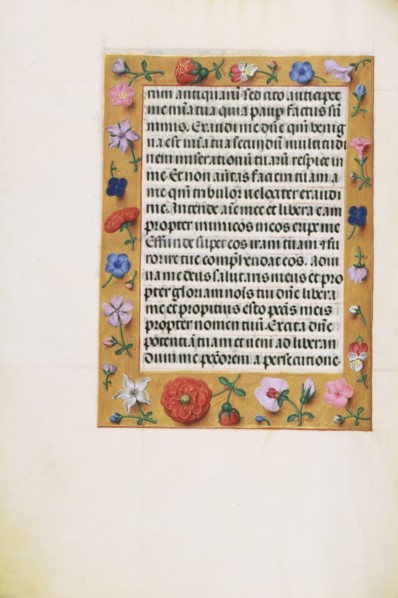 rum antiquarū sed cito anticipet
me mīa tua quia paup factus sū
nimis. Exaudi me dñe qm̄ benig
na est mīa tua secundū multitudi
nem miserationū tuarū respice in
me. Et non auertas faciem tuam a
me qm̄ tribulor uelociter exaudi
me. Intende aīe mee et libera eam
propter inimicos meos eripe me
Effunde super eos iram tuam ⁊ fu
ror ire tue comprehendat eos. Adiu
ua me deus salutaris meus et pro
pter gloriam nois tui dñe libera
me et propitius esto pctīs meis
propter nomen tuū. Excita dñe
potentiā tuam et ueni ad liberan
dum me pctōrem a persecutione